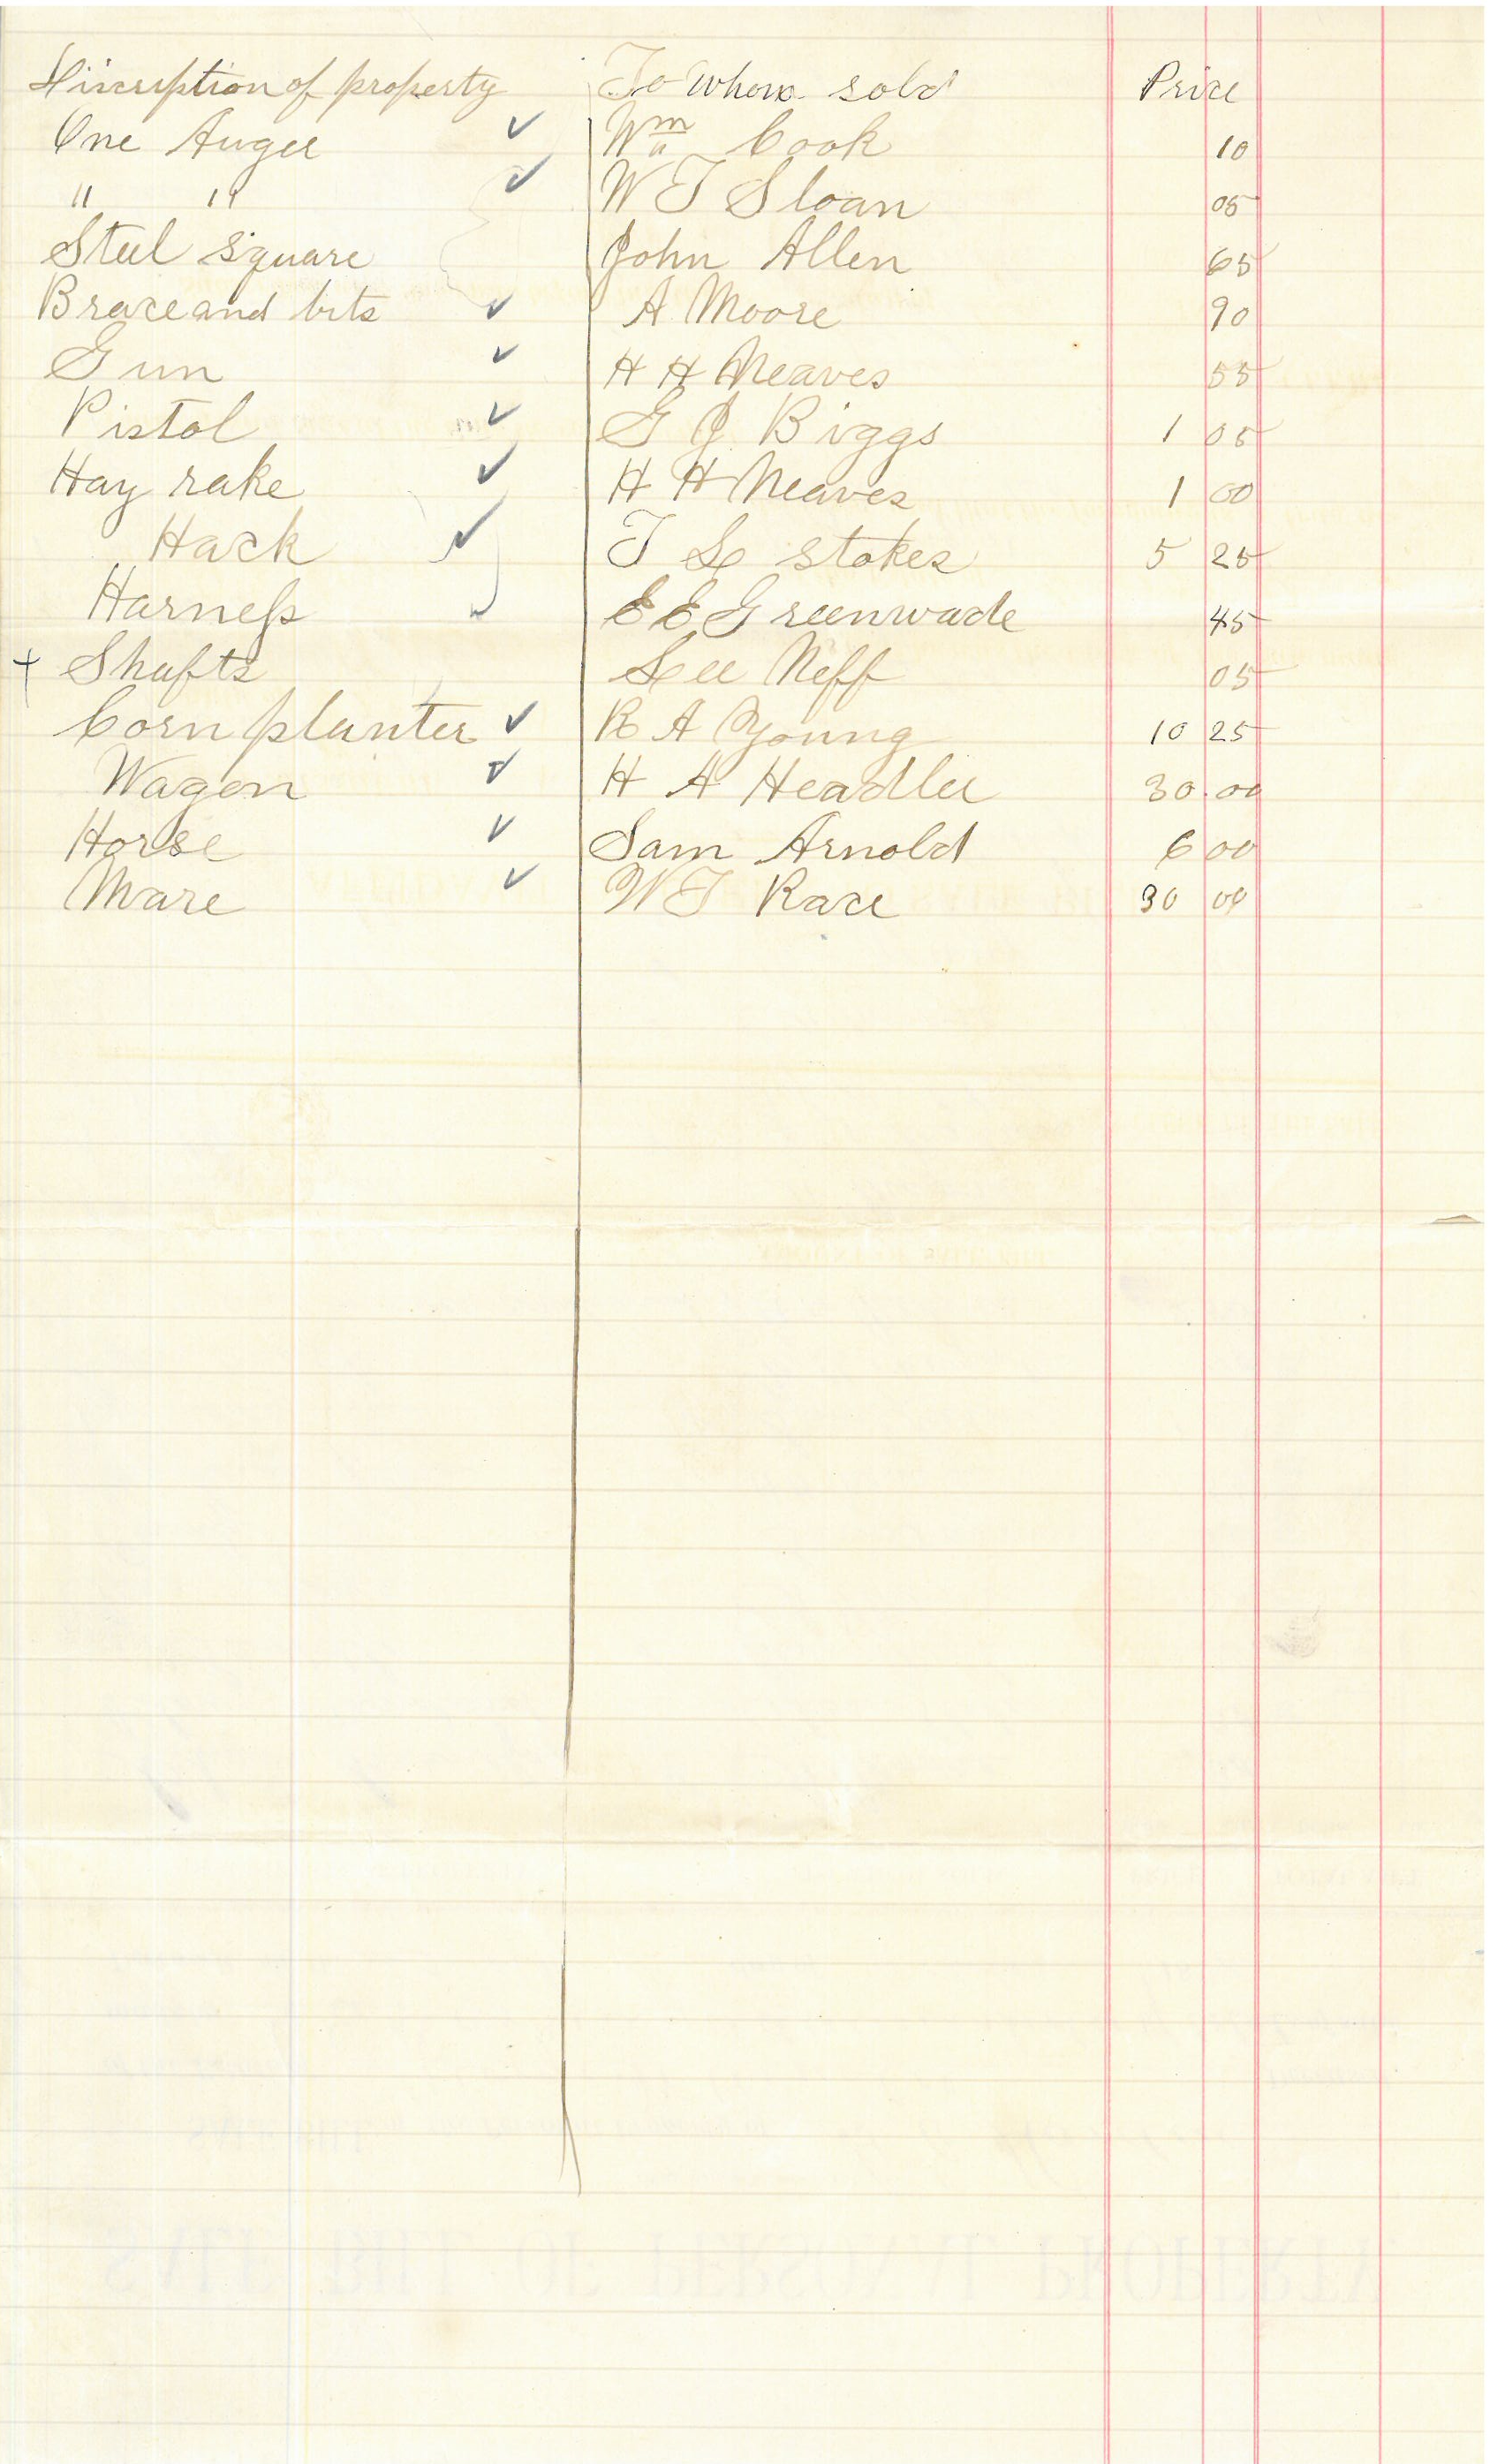 Discription of property To whom sold Price
One Auger ✓ Wm Cook 10
" " ✓ W T Sloan 05
Steel square John Allen 65
Brace and bits ✓ A Moore 90
Gun ✓ H H Neaves 55
Pistol ✓ G J Biggs 1 05
Hay rake ✓ H H Neaves 1 00
Hack ✓ T L Stokes 5 25
Harness ✓ E E Greenwade 45
+ Shafts Lee Neff 05
Corn planter ✓ R A Young 10 25
Wagon ✓ H A Headlee 30 00
Horse ✓ Sam Arnold 6 00
Mare ✓ W T Race 30 00